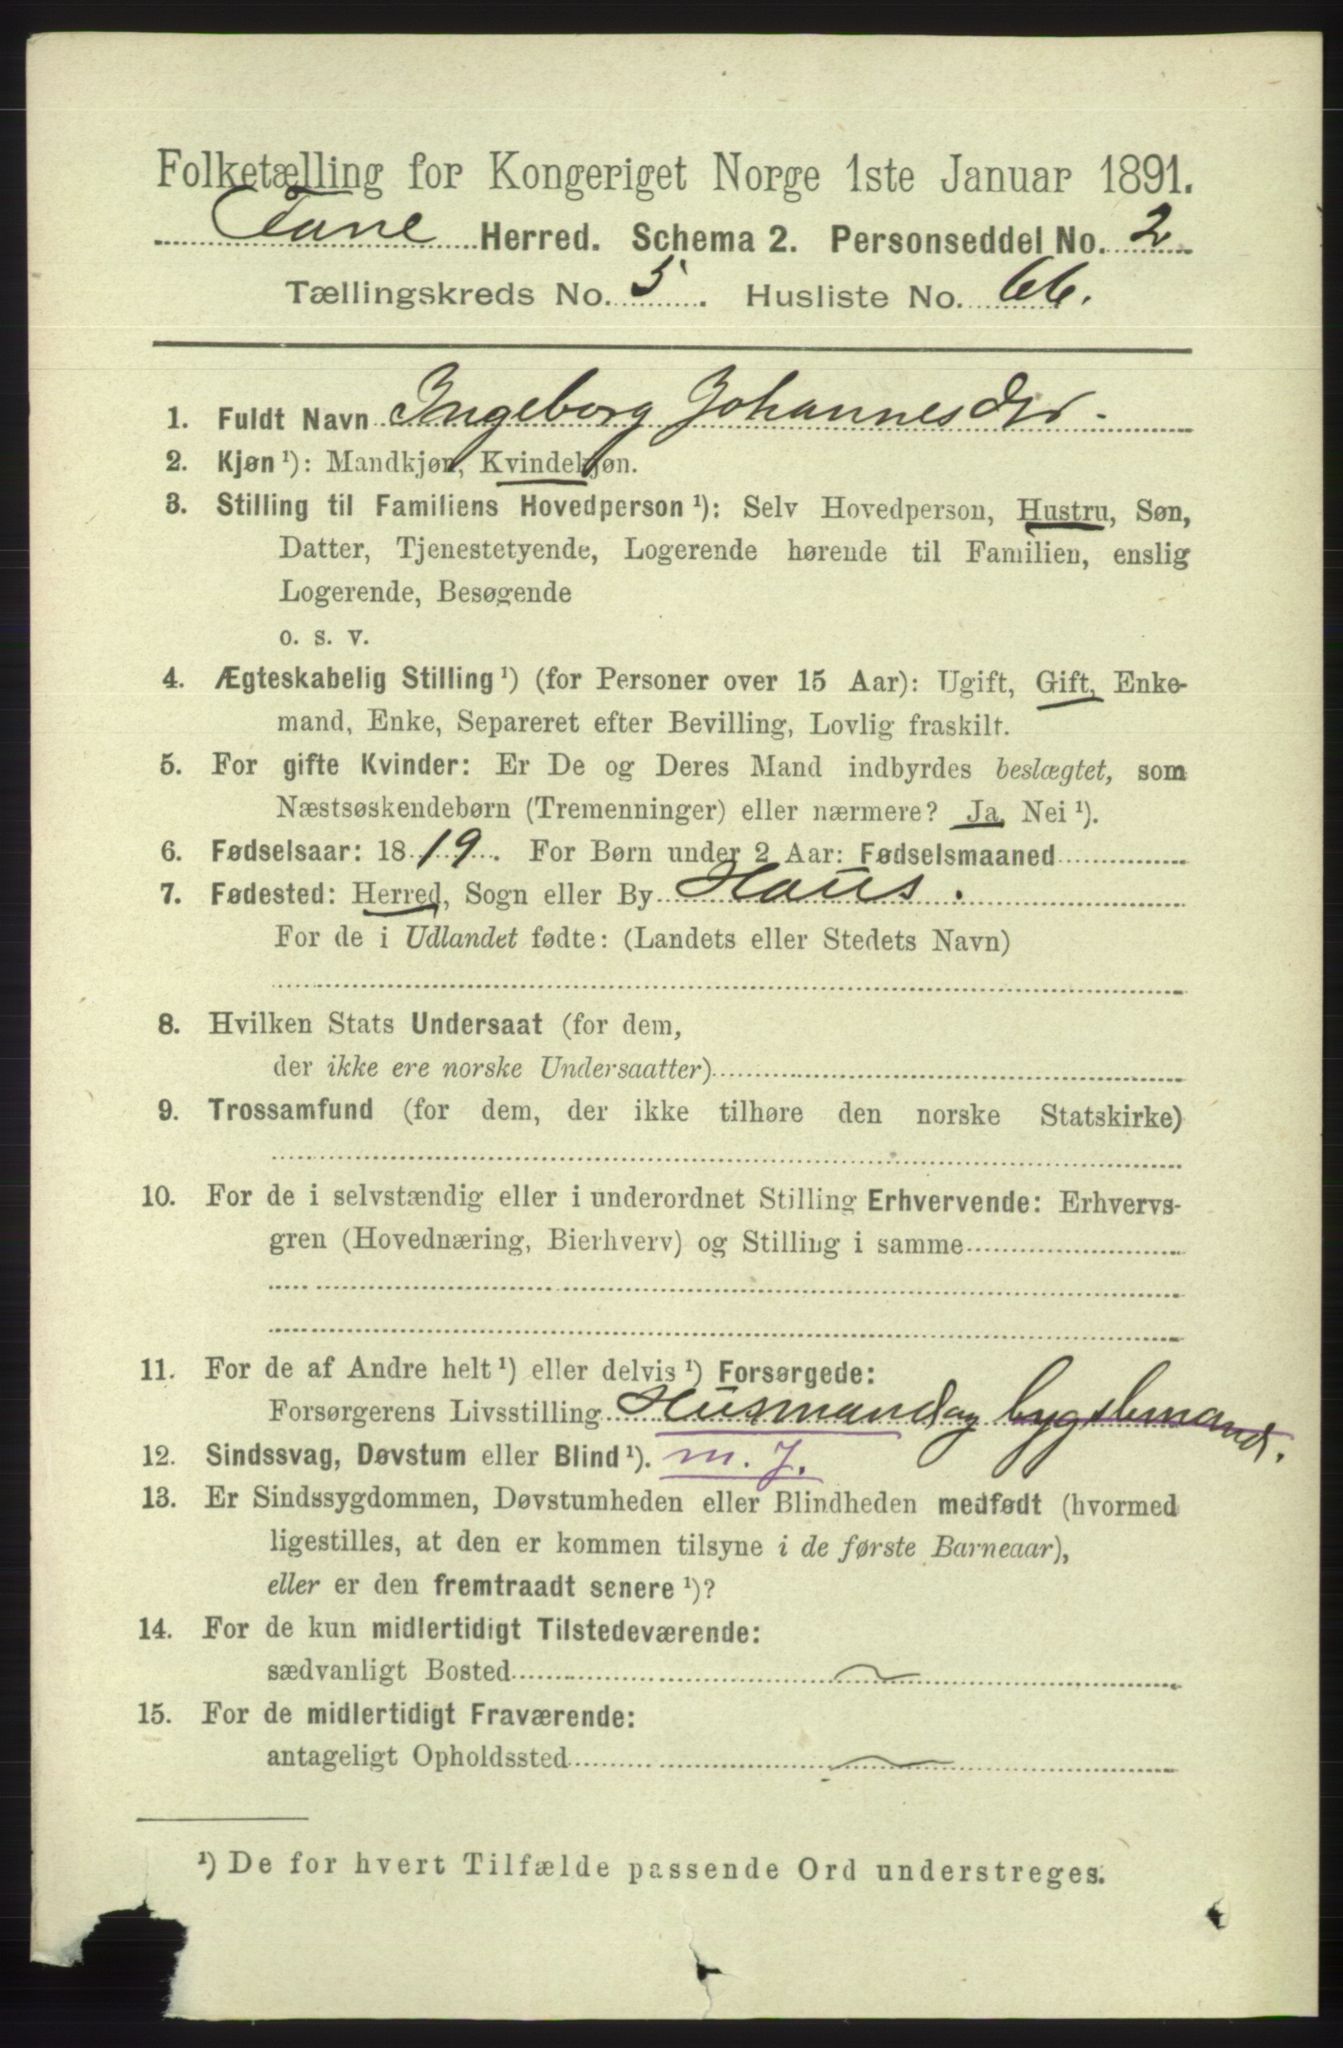 Folketælling for Kongeriget Norge 1ste Januar 1891.
Fane Herred. Schema 2. Personseddel No. 2
Tællingskreds No. 5. Husliste No. 66.
1. Fuldt Navn Ingeborg Johannesdtr.
2. Kjøn ¹): Mandkjøn, Kvindekjøn.
3. Stilling til Familiens Hovedperson ¹): Selv Hovedperson, Hustru, Søn,
Datter, Tjenestetyende, Logerende hørende til Familien, enslig
Logerende, Besøgende
o. s. v.
4. Ægteskabelig Stilling ¹) (for Personer over 15 Aar): Ugift, Gift, Enke-
mand, Enke, Separeret efter Bevilling, Lovlig fraskilt.
5. For gifte Kvinder: Er De og Deres Mand indbyrdes beslægtet, som
Næstsøskendebørn (Tremenninger) eller nærmere? Ja, Nei ¹).
6. Fødselsaar: 1819. For Børn under 2 Aar: Fødselsmaaned
7. Fødested: Herred, Sogn eller By Haus.
For de i Udlandet fødte: (Landets eller Stedets Navn)
8. Hvilken Stats Undersaat (for dem,
der ikke ere norske Undersaatter)
9. Trossamfund (for dem, der ikke tilhøre den norske Statskirke)
10. For de i selvstændig eller i underordnet Stilling Erhvervende: Erhvervs-
gren (Hovednæring, Bierhverv) og Stilling i samme
11. For de af Andre helt ¹) eller delvis ¹) Forsørgede:
Forsørgerens Livsstilling Husmand og bygslmand.
12. Sindssvag, Døvstum eller Blind ¹). m. J.
13. Er Sindssygdommen, Døvstumheden eller Blindheden medfødt (hvormed
ligestilles, at den er kommen tilsyne i de første Barneaar),
eller er den fremtraadt senere ¹)?
14. For de kun midlertidigt Tilstedeværende:
sædvanligt Bosted
15. For de midlertidigt Fraværende:
antageligt Opholdssted
¹) De for hvert Tilfælde passende Ord understreges.